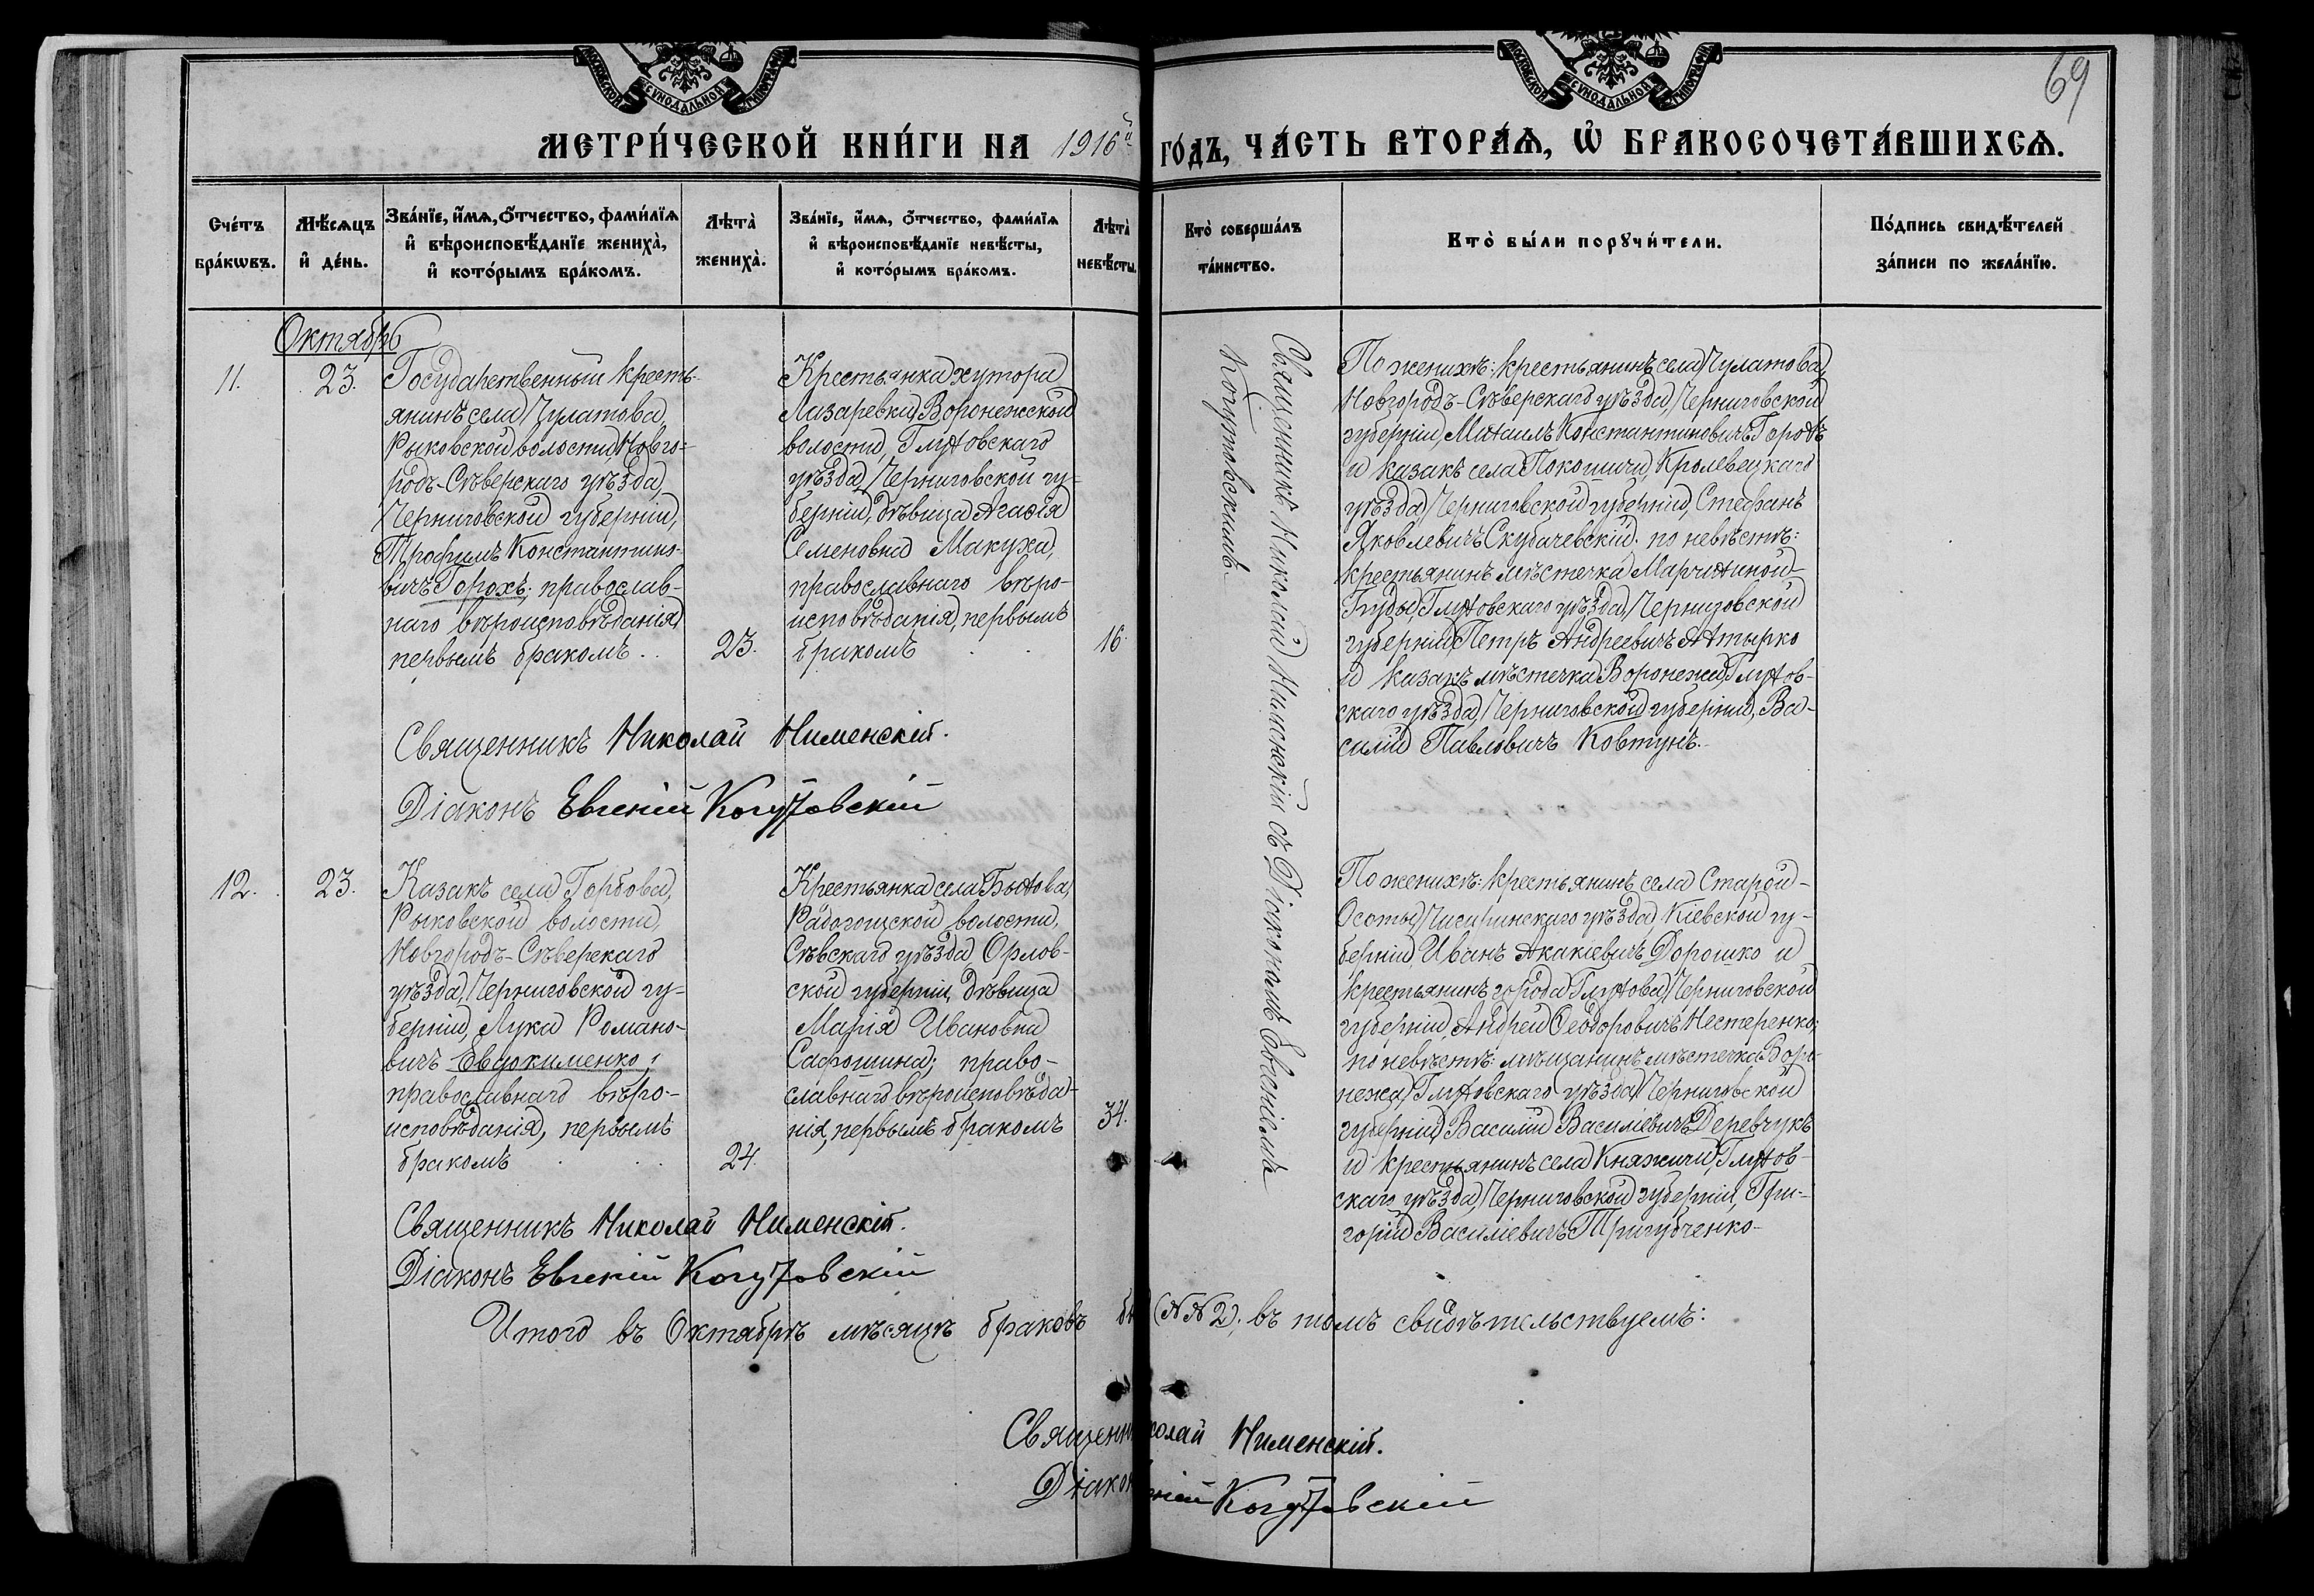 МОСКОВСКОЙ СѴНОДАЛЬНОЙ ТИПОГРАФІИ
МОСКОВСКОЙ СѴНОДАЛЬНОЙ ТИПОГРАФІИ
69
МЕТРИ́ЧЕСКОЙ КНИ́ГИ НА 1916й ГО́ДЪ, ЧА́СТЬ ВТОРА́Ѧ, Ѡ҆ БРАКОСОЧЕТА́ВШИХСѦ.
Сче́тъ
бра́кѡвъ.
Мѣ́сѧцъ
и҆ де́нь.
Зва́нїе, и҆́мѧ, ѻ҆́тчество, фами́лїѧ
и҆ вѣроисповѣ́данїе жениха̀,
и҆ кото́рымъ бра́комъ.
Лѣта̀
жениха̀.
Зва́нїе, и҆́мѧ, ѻ҆́тчество, фами́лїѧ
и҆ вѣроисповѣ́данїе невѣ́сты,
и҆ кото́рымъ бра́комъ.
Лѣта̀
невѣ́сты.
Кто̀ соверша́лъ
та́инство.
Кто̀ бы́ли порꙋчи́тели.
По́дпись свидѣ́телей
за́писи по жела́нїю.
Октябрь
11.
23.
Государственный кресть-
янинъ села Чулатова,
Рыковской волости, Новго-
родъ-Сѣверскаго уѣзда,
Черниговской губерніи,
Трофимъ Константино-
вичъ Горохъ; православ-
наго вѣроисповѣданія,
первымъ бракомъ . .
23.
Крестьянка хутора
Лазаревки, Воронежской
волости, Глуховскаго
уѣзда, Черниговской гу-
берніи, дѣвица Агафія
Семеновна Макуха,
православнаго вѣро-
исповѣданія, первымъ
бракомъ . .
16.
Священникъ Николай Нименскій съ Діакономъ Евгеніемъ
Когутовскимъ.
По женихѣ: крестьянинъ села Чулатова,
Новгородъ-Сѣверскаго уѣзда, Черниговской
губерніи, Михаилъ Константиновичъ Горохъ
и казакъ села Покошичи, Кролевецкаго
уѣзда, Черниговской губерніи, Стефанъ
Яковлевичъ Скубачевскій; по невѣстѣ:
крестьянинъ мѣстечка Марчихиной-
Буды, Глуховскаго уѣзда, Черниговской
губерніи, Петръ Андреевичъ Ахтырко
и казакъ мѣстечка Воронежа, Глухов-
скаго уѣзда, Черниговской губерніи, Ва-
силій Павловичъ Ковтунъ.
Священникъ Николай Нименскій.
Діаконъ Евгеній Когутовскій
12.
23.
Казакъ села Горбова,
Рыковской волости,
Новгородъ-Сѣверскаго
уѣзда, Черниговской гу-
берніи, Лука Романо-
вичъ Евдокименко;
православнаго вѣро-
исповѣданія, первымъ
бракомъ . . .
24.
Крестьянка села Бытова,
Радогощской волости,
Сѣвскаго уѣзда, Орлов-
ской губерніи, дѣвица
Марія Ивановна
Сафошина; право-
славнаго вѣроисповѣда-
нія, первымъ бракомъ
34.
По женихѣ: крестьянинъ села Старой-
Осоты, Чигиринскаго уѣзда, Кіевской гу-
берніи, Иванъ Акакіевичъ Дорошко и
крестьянинъ города Глухова, Черниговской
губерніи, Андрей Ѳеодоровичъ Нестеренко;
по невѣстѣ: мѣщанинъ мѣстечка Воро-
нежа, Глуховскаго уѣзда, Черниговской
губерніи, Василій Василіевичъ Деревчукъ
и крестьянинъ села Княжичи, Глухов-
скаго уѣзда, Черниговской губерніи, Гри-
горій Василіевичъ Тригубченко
Священникъ Николай Нименскій.
Діаконъ Евгеній Когутовскій
Итого въ Октябрѣ мѣсяцѣ браковъ (№№ 2). въ томъ свидѣтельствуемъ:
Священн колай Нименскій.
Діакон еній Когутовскій